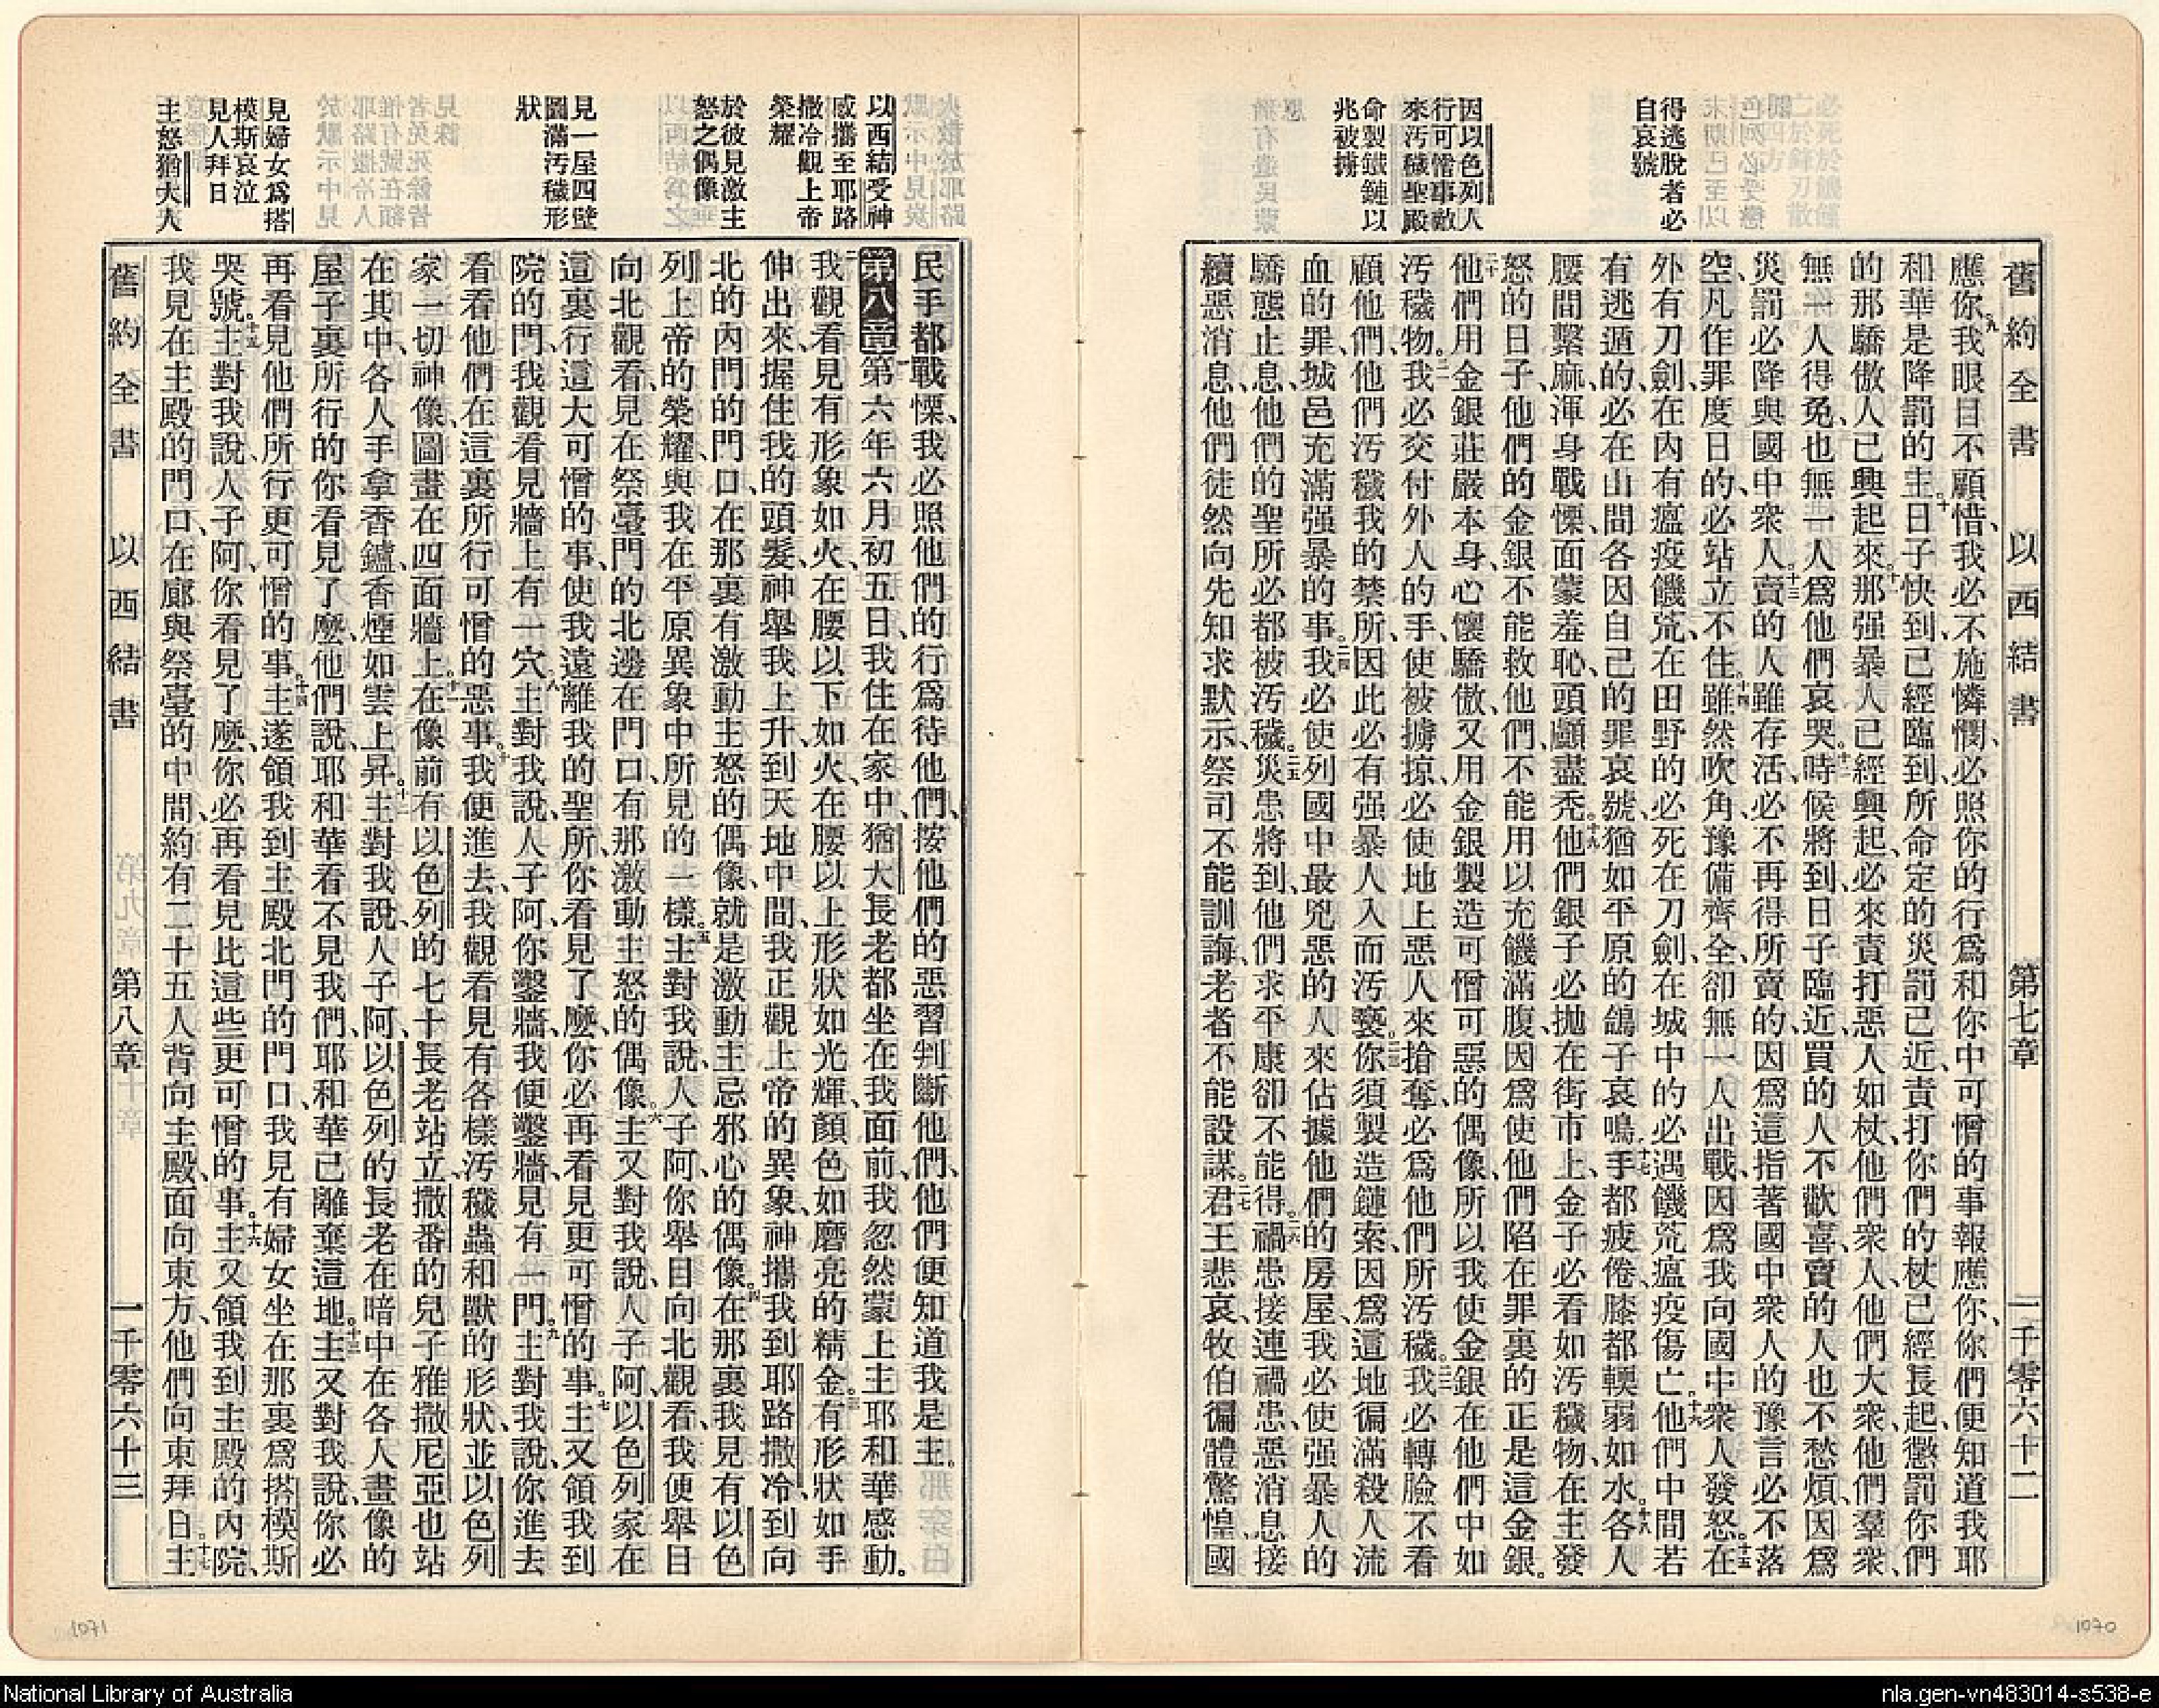 舊約全書　以西結書　第七章　一千零六十二
得逃脫者必
自哀號
因以色列人
行可憎事敵
來汚穢聖殿
命製鐵鏈以
兆被擄
應你、九我眼目不顧惜、我必不施憐憫、必照你的行爲和你中可憎的事報應你、你們便知道我耶
和華是降罰的主。十日子快到、已經臨到、所命定的災罰已近、責打你們的杖已經長起、懲罰你們
的那驕傲人已興起來。十一那强暴人已經興起、必來責打惡人如杖、他們衆人、他們大衆、他們羣衆、
無一人得免、也無一人爲他們哀哭。十二時候將到、日子臨近、買的人不歡喜、賣的人也不愁煩、因爲
災罰必降與國中衆人。十三賣的人雖存活、必不再得所賣的、因爲這指著國中衆人的豫言必不落
空、凡作罪度日的、必站立不住。十四雖然吹角、豫備齊全、卻無一人出戰、因爲我向國中衆人發怒。十五在
外有刀劍、在內有瘟疫饑荒、在田野的必死在刀劍、在城中的必遇饑荒瘟疫傷亡。十六他們中間若
有逃遁的、必在山間各因自己的罪哀號、猶如平原的鴿子哀鳴。十七手都疲倦、膝都輭弱如水。十八各人
腰間繫麻、渾身戰慄、面蒙羞恥、頭顱盡禿。十九他們銀子必拋在街市上、金子必看如汚穢物、在主發
怒的日子、他們的金銀不能救他們、不能用以充饑滿腹、因爲使他們陷在罪裏的正是這金銀。
二十他們用金銀莊嚴本身、心懷驕傲、又用金銀製造可憎可惡的偶像、所以我使金銀在他們中如
汚穢物。二一我必交付外人的手、使被擄掠、必使地上惡人來搶奪、必爲他們所汚穢。二二我必轉臉不看
顧他們、他們汚穢我的禁所、因此必有强暴人入而汚褻。二三你須製造鏈索、因爲這地徧滿殺人流
血的罪、城邑充滿强暴的事。二四我必使列國中最兇惡的人來佔據他們的房屋、我必使强暴人的
驕態止息、他們的聖所必都被汚穢。二五災患將到、他們求平康卻不能得。二六禍患接連禍患、惡消息接
續惡消息、他們徒然向先知求默示、祭司不能訓誨、老者不能設謀。二七君王悲哀、牧伯徧體驚惶、國
以西結受神
感攜至耶路
撒冷觀上帝
榮耀
於彼見激主
怒之偶像
見一屋四壁
圖滿汚穢形
狀
見婦女爲搭
模斯哀泣
見人拜日
主怒猶大人
民手都戰慄、我必照他們的行爲待他們、按他們的惡習判斷他們、他們便知道我是主。
第八章　一第六年六月初五日、我住在家中、猶大長老都坐在我面前、我忽然蒙上主耶和華感動。
二我觀看、見有形象如火、在腰以下如火、在腰以上形狀如光輝、顏色如磨亮的精金。三有形狀如手
伸出來、握住我的頭髮、神舉我上升到天地中間、我正觀上帝的異象、神攜我到耶路撒冷、到向
北的內門的門口、在那裏有激動主怒的偶像、就是激動主忌邪心的偶像。四在那裏我見有以色
列上帝的榮耀、與我在平原異象中所見的一樣。五主對我說、人子阿、你舉目向北觀看、我便舉目
向北觀看、見在祭臺門的北邊在門口、有那激動主怒的偶像。六主又對我說、人子阿、以色列家在
這裏行這大可憎的事、使我遠離我的聖所、你看見了麽、你必再看見更可憎的事。七主又領我到
院的門、我觀看、見牆上有一穴。八主對我說、人子阿、你鑿牆、我便鑿牆、見有一門。九主對我說、你進去
看看他們在這裏所行可憎的惡事。十我便進去、我觀看、見有各樣汚穢蟲和獸的形狀、並以色列
家一切神像、圖畫在四面牆上。十一在像前有以色列的七十長老站立、撒番的兒子雅撒尼亞也站
在其中、各人手拿香鑪、香煙如雲上昇。十二主對我說、人子阿、以色列的長老在暗中在各人畫像的
屋子裏所行的、你看見了麽、他們說、耶和華看不見我們、耶和華已離棄這地。十三主又對我說、你必
再看見他們所行更可憎的事。十四主遂領我到主殿北門的門口、我見有婦女坐在那裏爲搭模斯
哭號。十五主對我說、人子阿、你看見了麽、你必再看見此這些更可憎的事。十六主又領我到主殿的內院、
我見在主殿的門口、在廊與祭臺的中間、約有二十五人背向主殿、面向東方、他們向東拜日。十七主
舊約全書　以西結書　第八章　一千零六十三
1071
1070
National Library of Australia
nla.gen-vn483014-s538-e